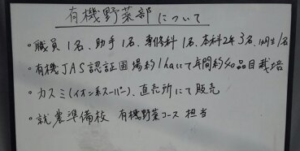 有機野菜部について
・職員1名、助手1名、専攻科1名、本科2年3名、1年1名
・有機JAS認証圃場約1haにて年間約40品目栽培
・カスミ(イオン系スーパー)、直売所にて販売
・就農準備校 有機野菜コース 担当